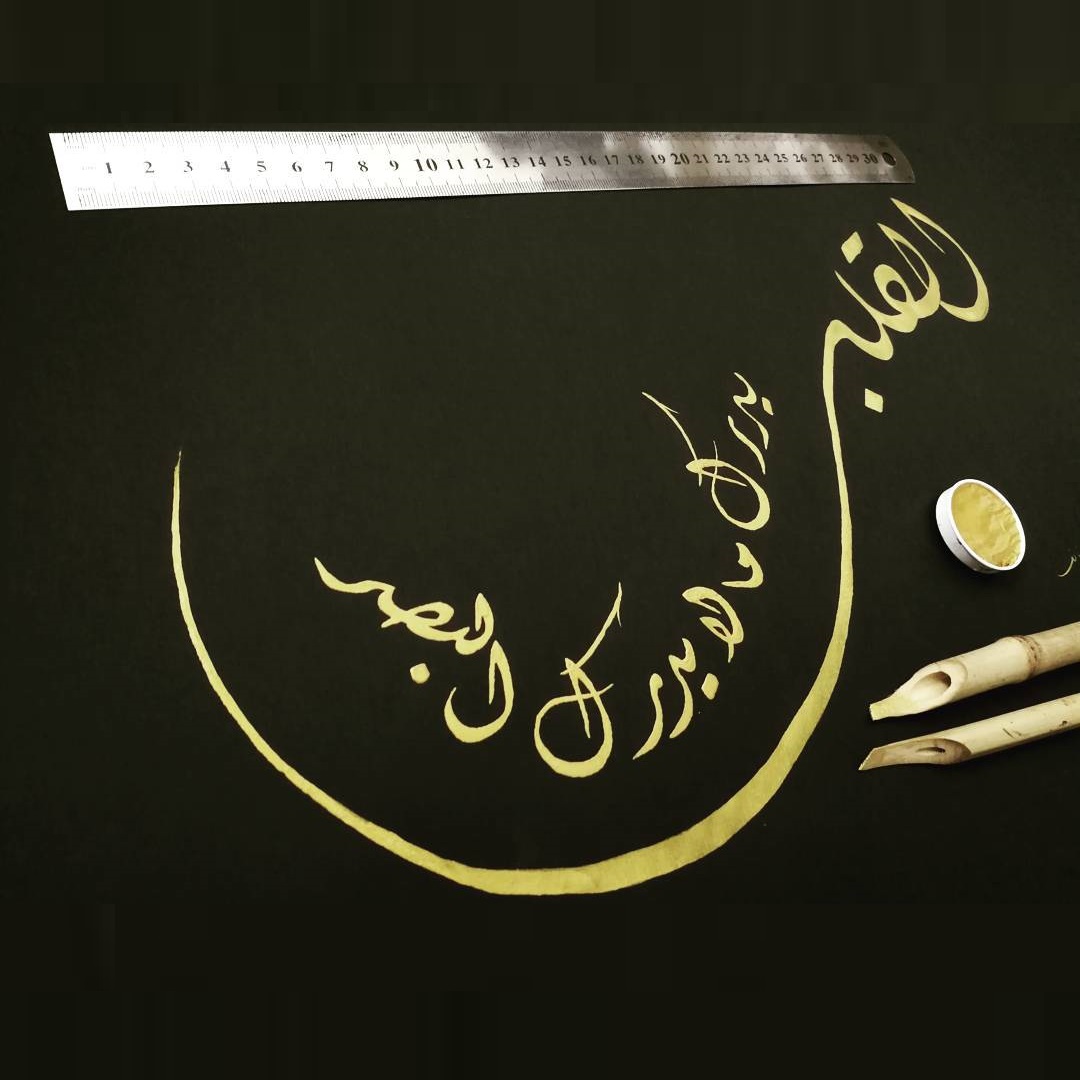 1 2 3 4 5 6 7 8 9 10 11 12 13 14 15 16 17 18 19 20 21 22 23 24 25 26 27 28 29 30
القلب
يدرك ما لا يدرك البصر